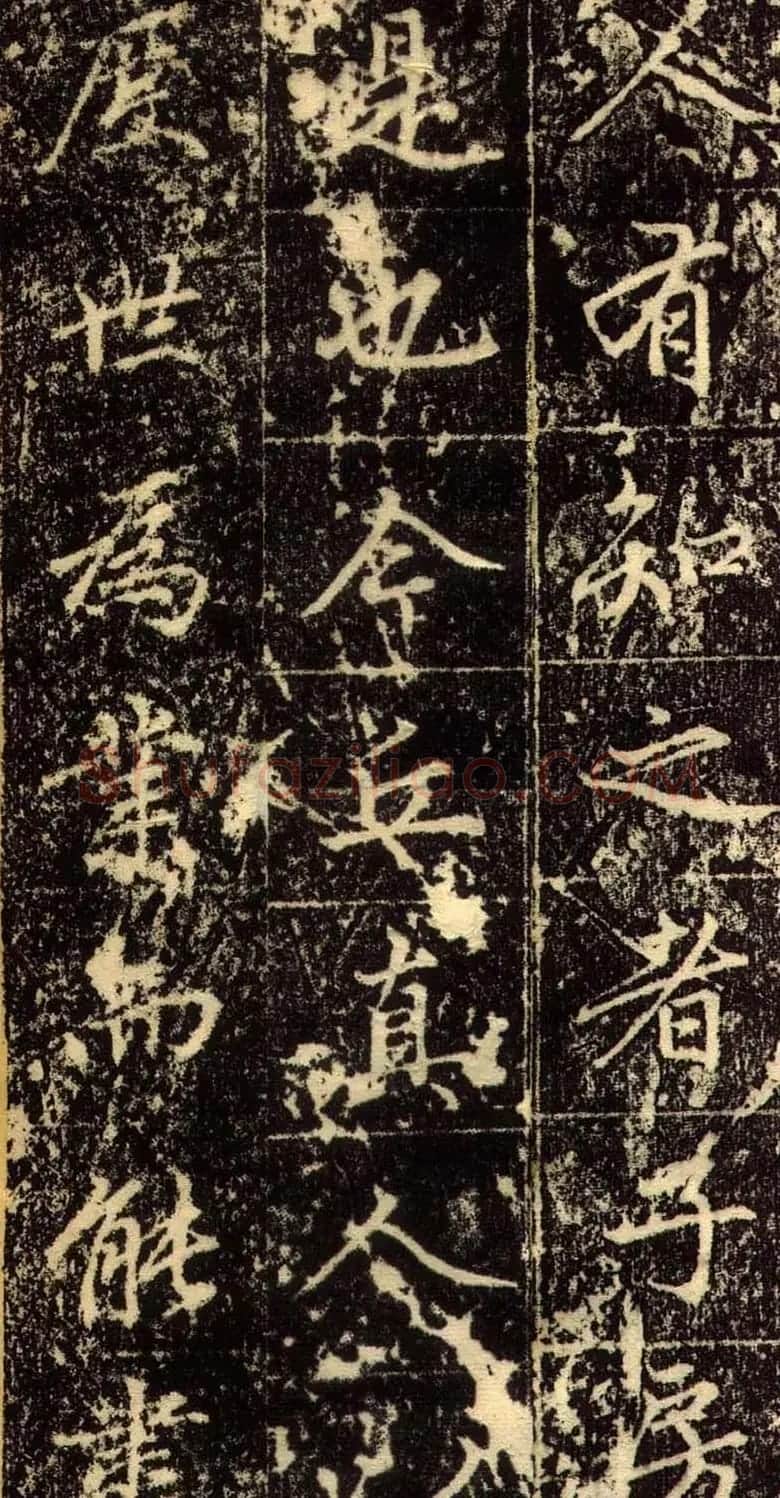 人有知之者子房
是也今丘真人
度世為業而能
Shufaziliao.COM